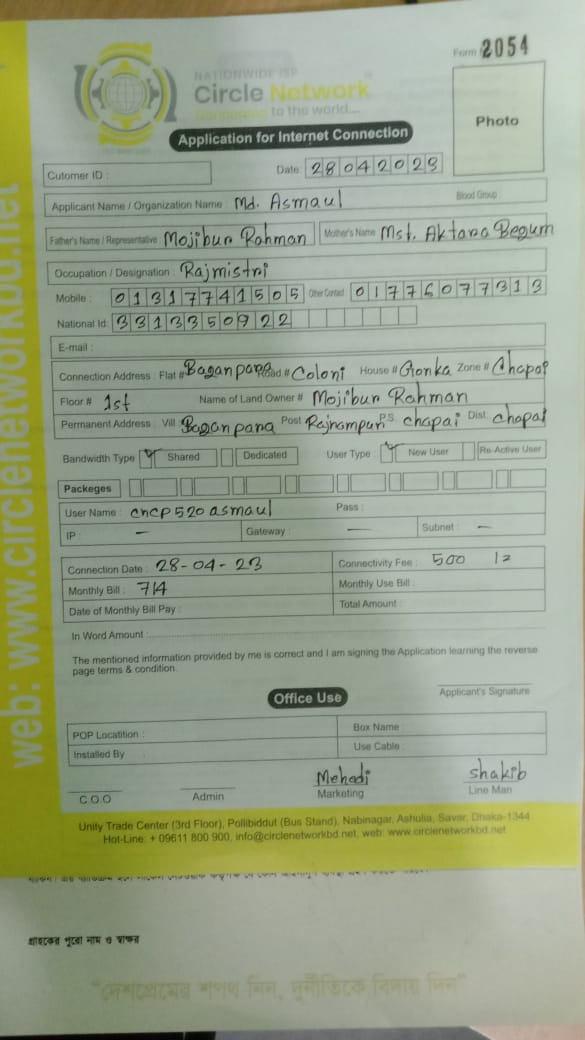 Form 2054
NATIONWIDE ISP
Circle Network
Connecting to the world....
Photo
Application for Internet Connection
Cutomer ID :
Date: 28042023
Applicant Name / Organization Name : Md. Asmaul Blood Group :
Father's Name / Representative Mojibur Rahman Mother's Name Mst. Aktara Begum
Occupation / Designation : Rajmistri
Mobile : 01317741505 Other Contact 01776077313
National Id: 3313350922
E-mail :
Connection Address : Flat # Baganpara Road # Coloni House # Gonka Zone # Chapai
Floor # 1st Name of Land Owner # Mojibur Rahman
Permanent Address : Vill Baganpara Post Rajrampur P.S. chapai Dist. chapai
Bandwidth Type Shared Dedicated User Type : New User Re-Active User
Packeges
User Name : cncp520asmaul Pass :
IP : — Gateway : — Subnet : —
Connection Date : 28-04-23 Connectivity Fee : 500
Monthly Bill : 714 Monthly Use Bill :
Date of Monthly Bill Pay : Total Amount :
In Word Amount :
The mentioned information provided by me is correct and I am signing the Application learning the reverse
page terms & condition.
Applicant's Signature
Office Use
POP Locatition : Box Name :
Installed By Use Cable :
Mehedi shakib
C.O.O Admin Marketing Line Man
Unity Trade Center (3rd Floor), Pollibiddut (Bus Stand), Nabinagar, Ashulia, Savar, Dhaka-1344
Hot-Line: + 09611 800 900, info@circlenetworkbd.net, web: www.circlenetworkbd.net
web: www.circlenetworkbd.net
গ্রাহকের পুরো নাম ও স্বাক্ষর
“দেশপ্রেমের শপথ নিন, দুর্নীতিকে বিদায় দিন”